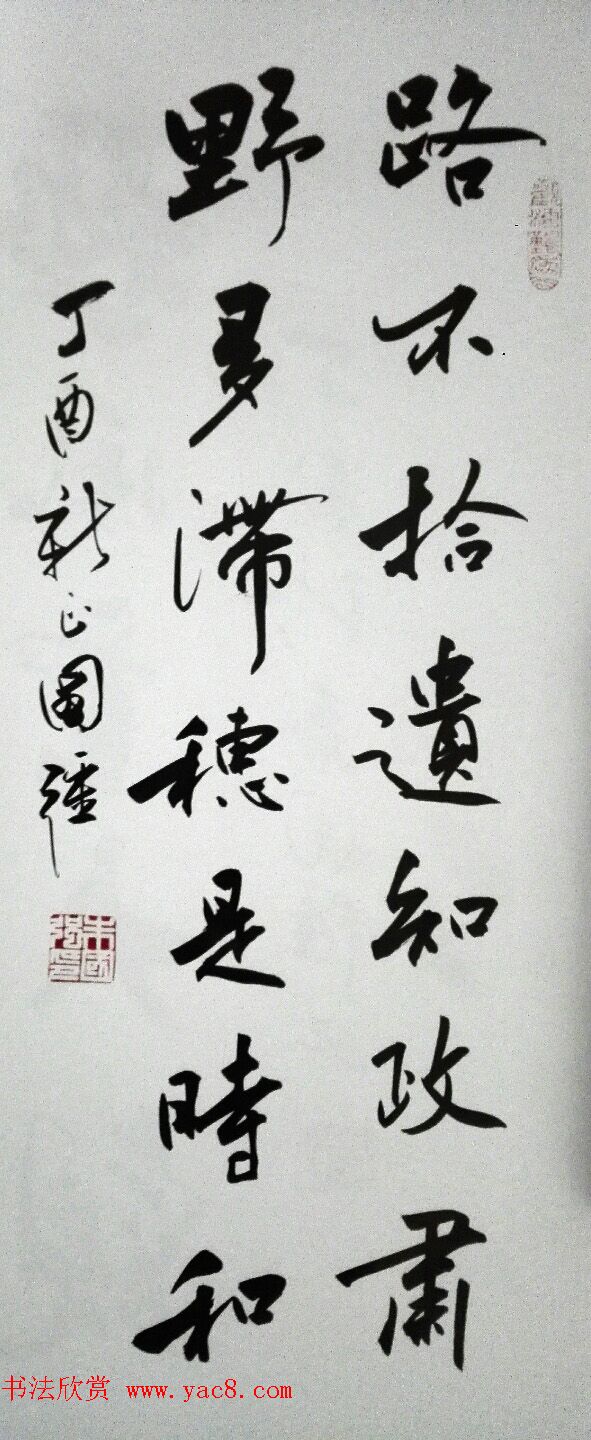 路不拾遺知政肅
野多滯穗是時和
丁酉新正國疆
书法欣赏 www.yac8.com